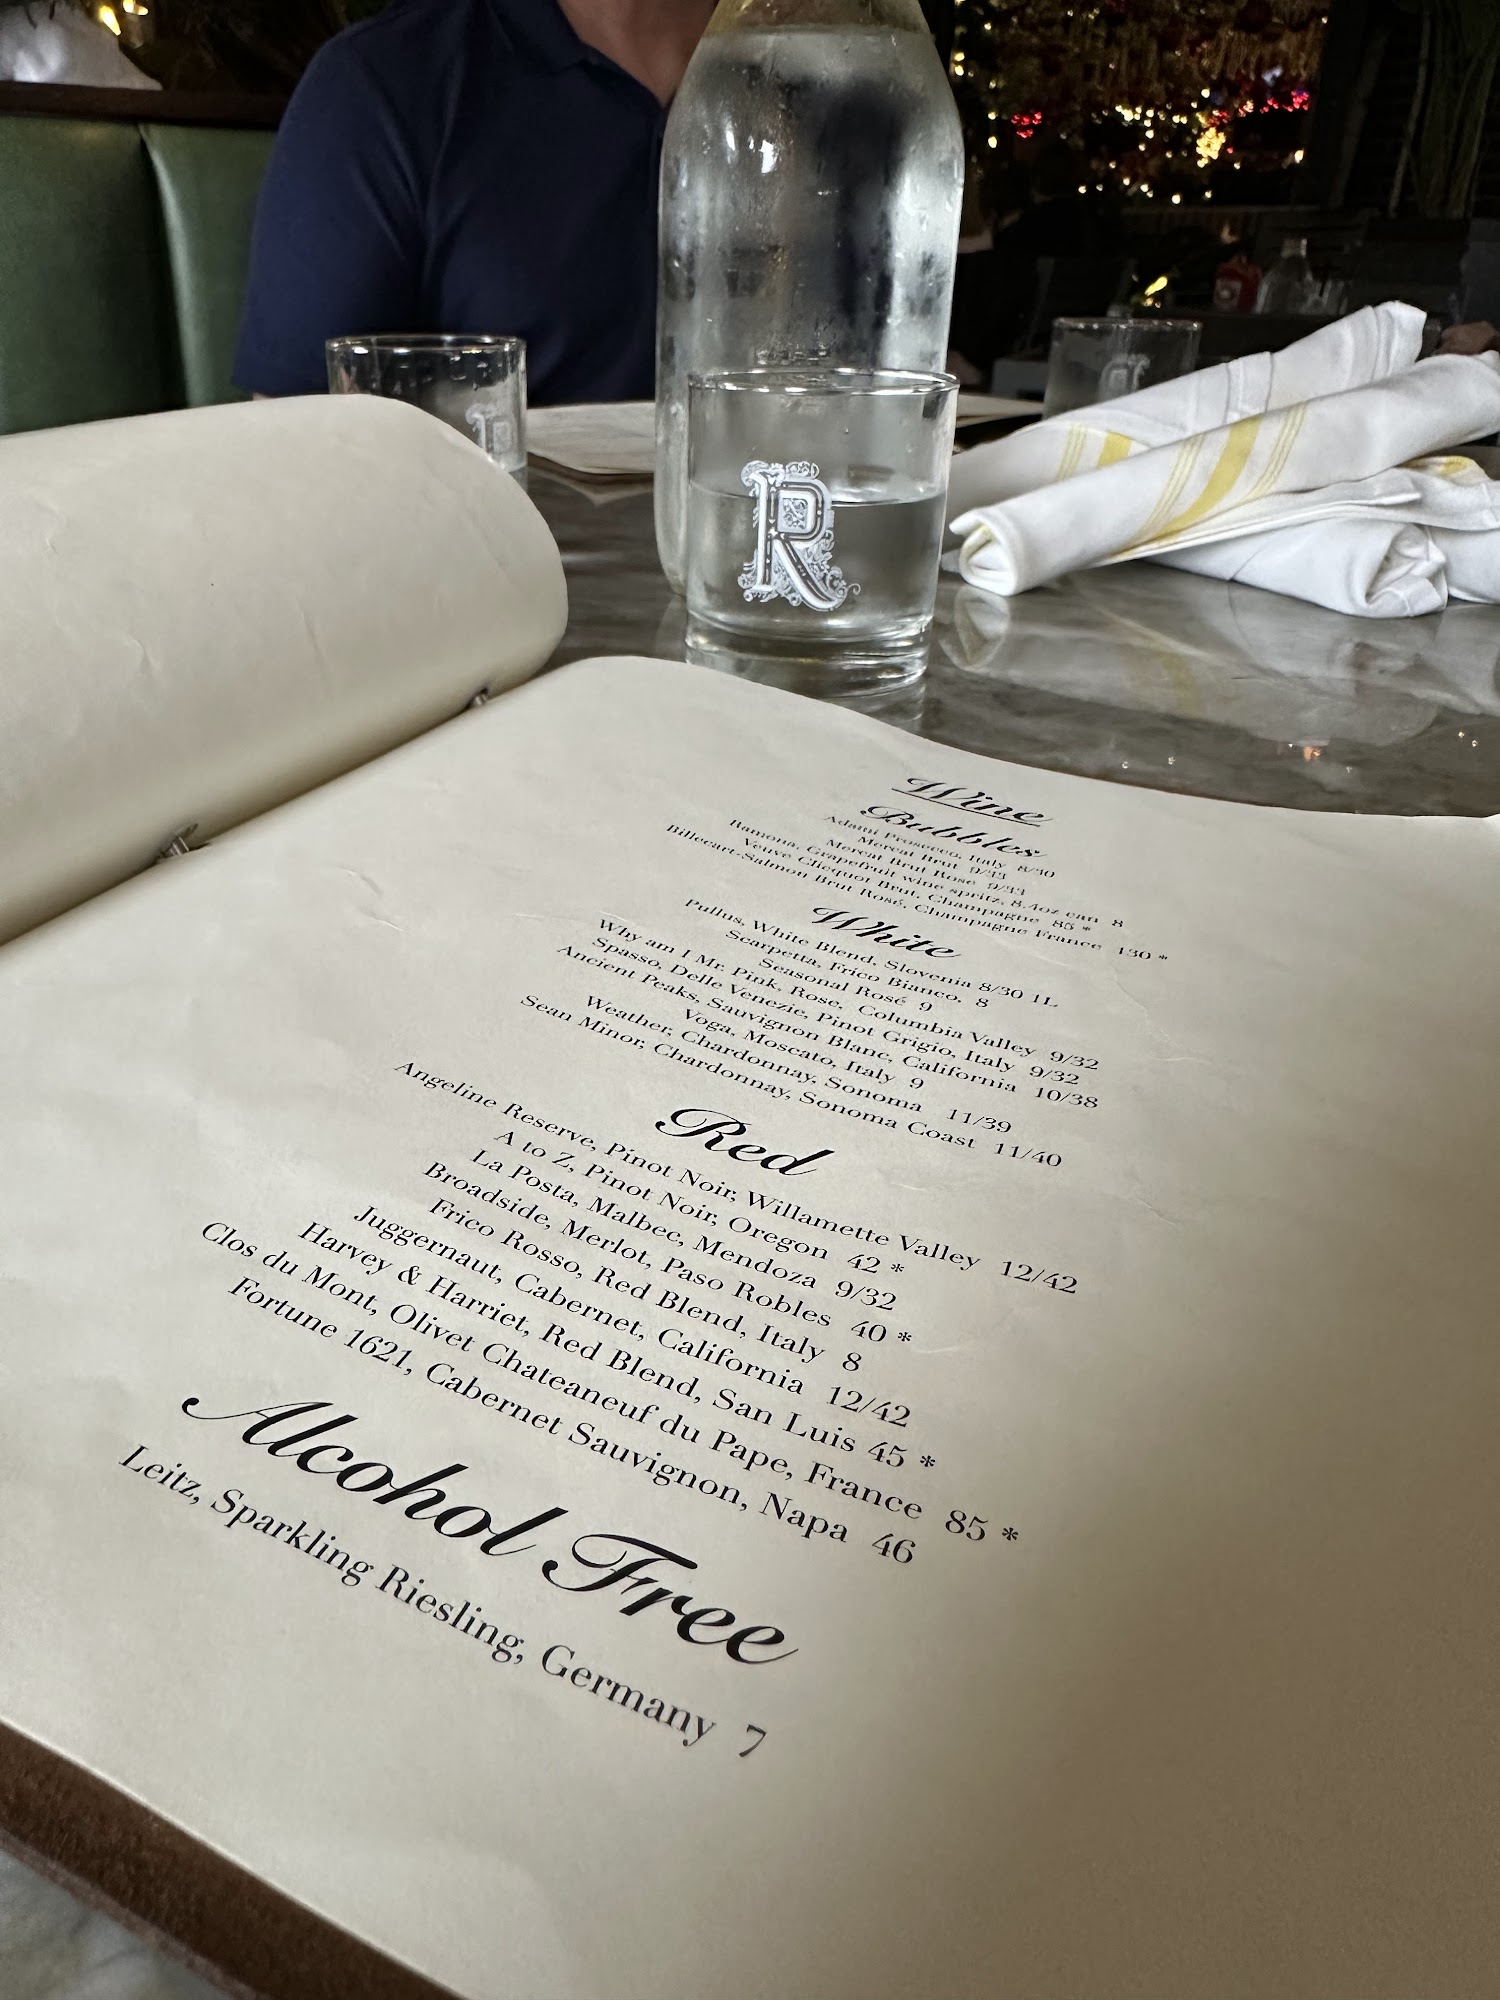 R
R
Wine
Bubbles
Adami Prosecco, Italy 8/40
Mercat Brut 9/33
Mercat Brut Rose 9/33
Ramona, Grapefruit wine spritz, 8.4oz can 8
Veuve Clicquot Brut, Champagne 85 *
Billecart-Salmon Brut Rosé, Champagne France 130 *
White
Pullus, White Blend, Slovenia 8/30 1L
Scarpetta, Frico Bianco, 8
Seasonal Rosé 9
Why am I Mr. Pink, Rose, Columbia Valley 9/32
Spasso, Delle Venezie, Pinot Grigio, Italy 9/32
Ancient Peaks, Sauvignon Blanc, California 10/38
Voga, Moscato, Italy 9
Weather, Chardonnay, Sonoma 11/39
Sean Minor, Chardonnay, Sonoma Coast 11/40
Red
Angeline Reserve, Pinot Noir, Willamette Valley 12/42
A to Z, Pinot Noir, Oregon 42 *
La Posta, Malbec, Mendoza 9/32
Broadside, Merlot, Paso Robles 40 *
Frico Rosso, Red Blend, Italy 8
Juggernaut, Cabernet, California 12/42
Harvey & Harriet, Red Blend, San Luis 45 *
Clos du Mont, Olivet Chateaneuf du Pape, France 85 *
Fortune 1621, Cabernet Sauvignon, Napa 46
Alcohol Free
Leitz, Sparkling Riesling, Germany 7